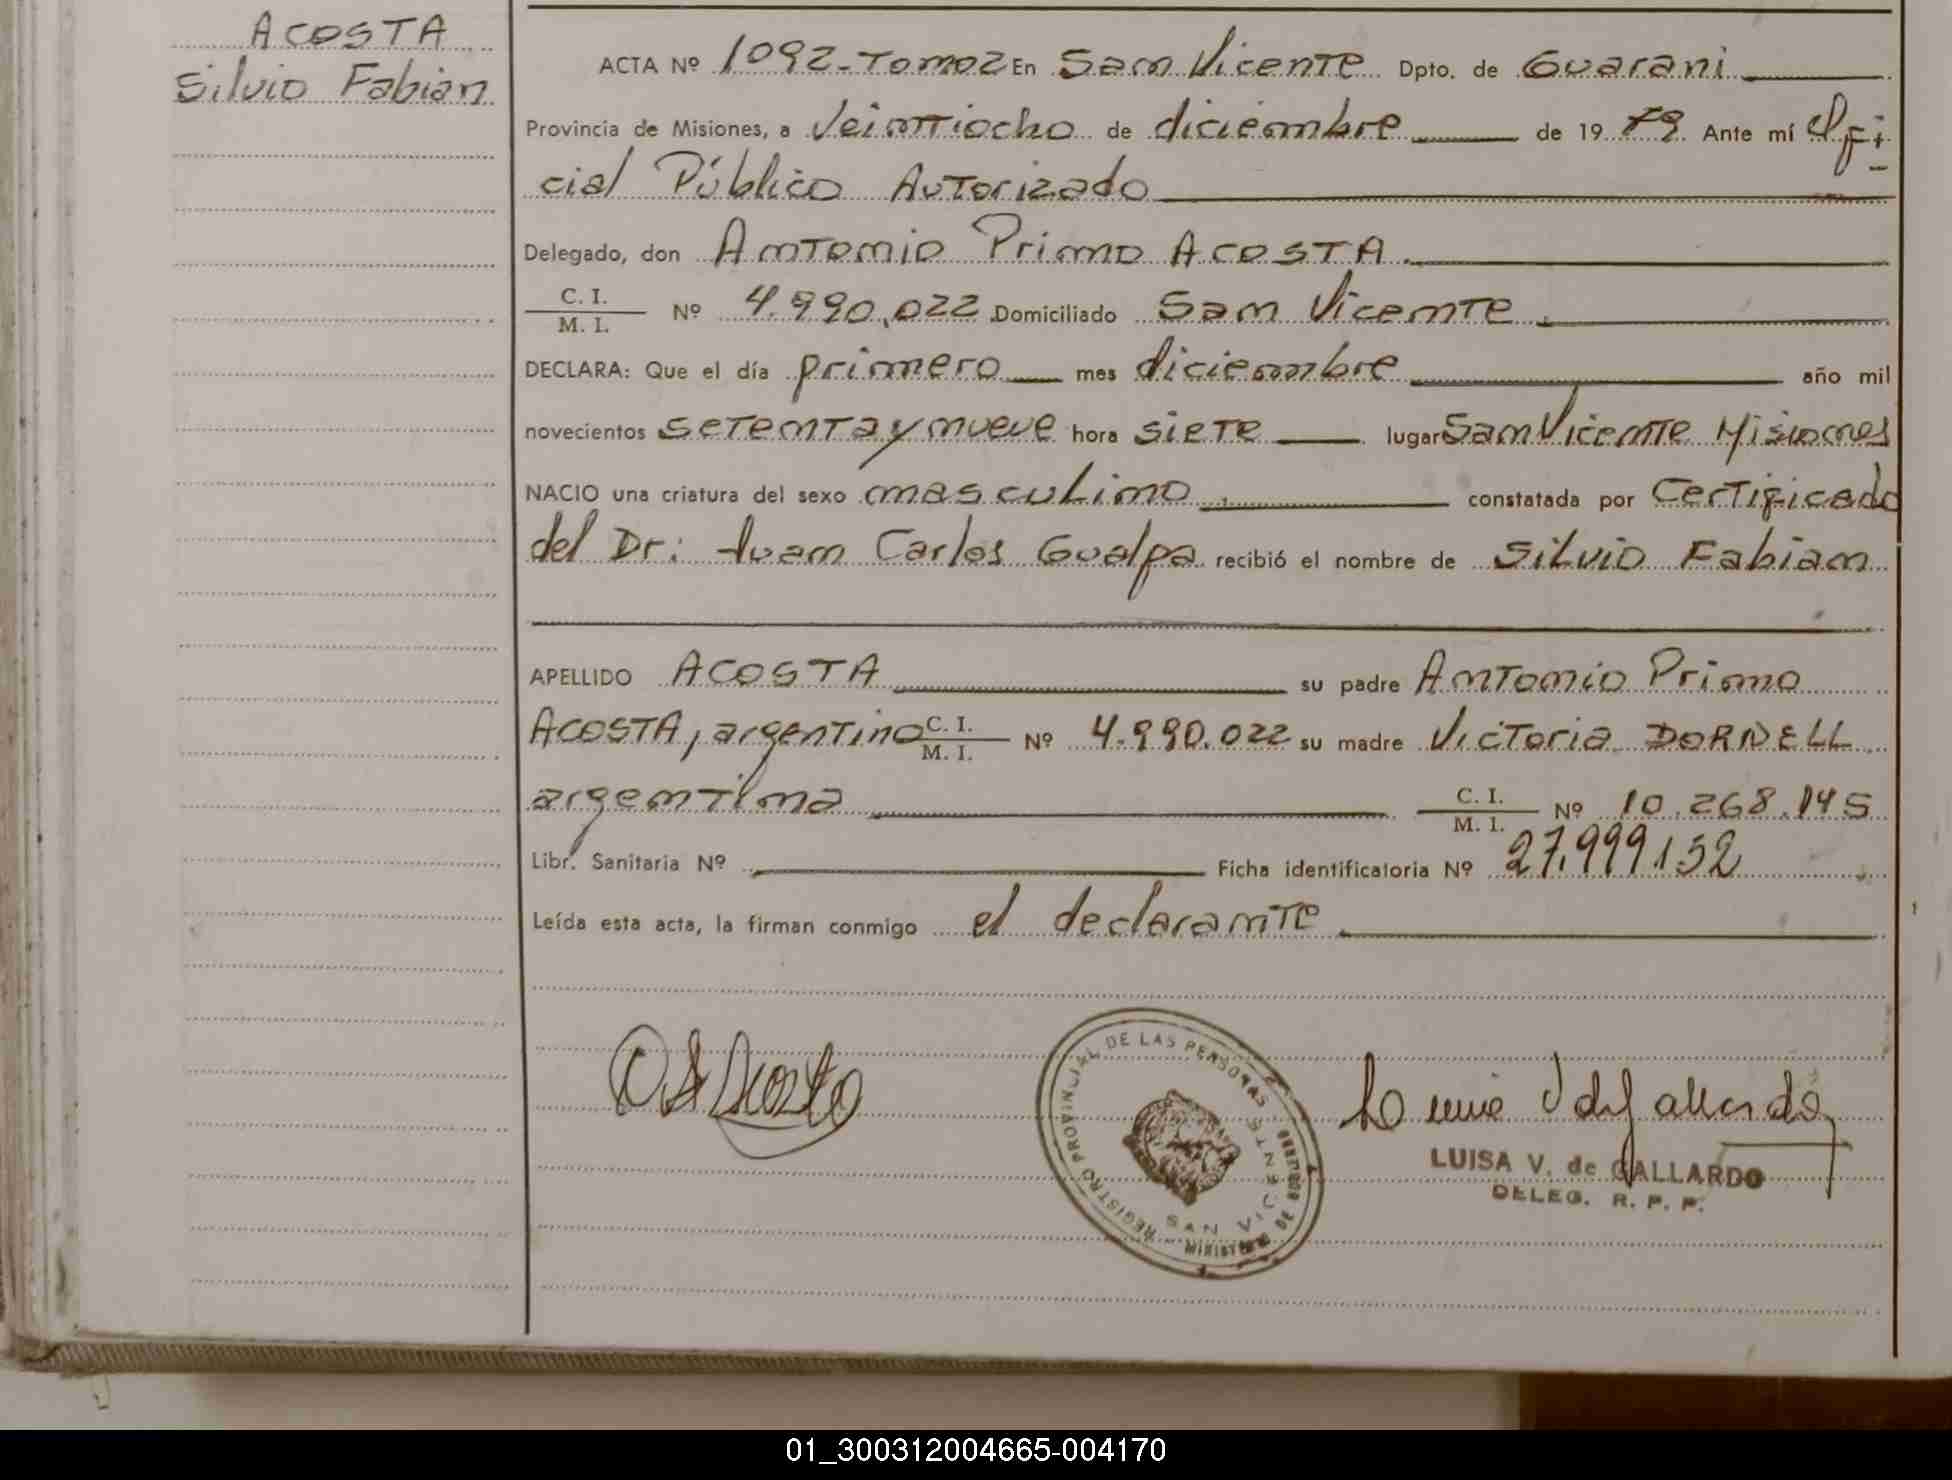 ACOSTA
Silvio Fabian
ACTA Nº 1092-Tomo2 En San Vicente Dpto. de Guarani
Provincia de Misiones, a Veintiocho de diciembre de 19 79 Ante mí Ofi
cial Público Autorizado
Delegado, don Antonio Primo ACOSTA
C. I.
M. I. Nº 4.990.022 Domiciliado San Vicente
DECLARA: Que el día primero mes diciembre año mil
novecientos setenta y nueve hora siete lugar San Vicente Misiones
NACIO una criatura del sexo masculino constatada por Certificado
del Dr: Juan Carlos Gualpa recibió el nombre de Silvio Fabian
APELLIDO ACOSTA su padre Antonio Primo
ACOSTA, argentino C. I.
M. I. Nº 4.990.022 su madre Victoria DORNELL
argentina C. I.
M. I. Nº 10.268.145
Libr. Sanitaria Nº Ficha identificatoria Nº 27.999.152
Leída esta acta, la firman conmigo el declarante
REGISTRO PROVINCIAL DE LAS PERSONAS
SAN VICENTE
MINISTERIO DE GOBIERNO
LUISA V. de GALLARDO
DELEG. R. P. P.
01_300312004665-004170